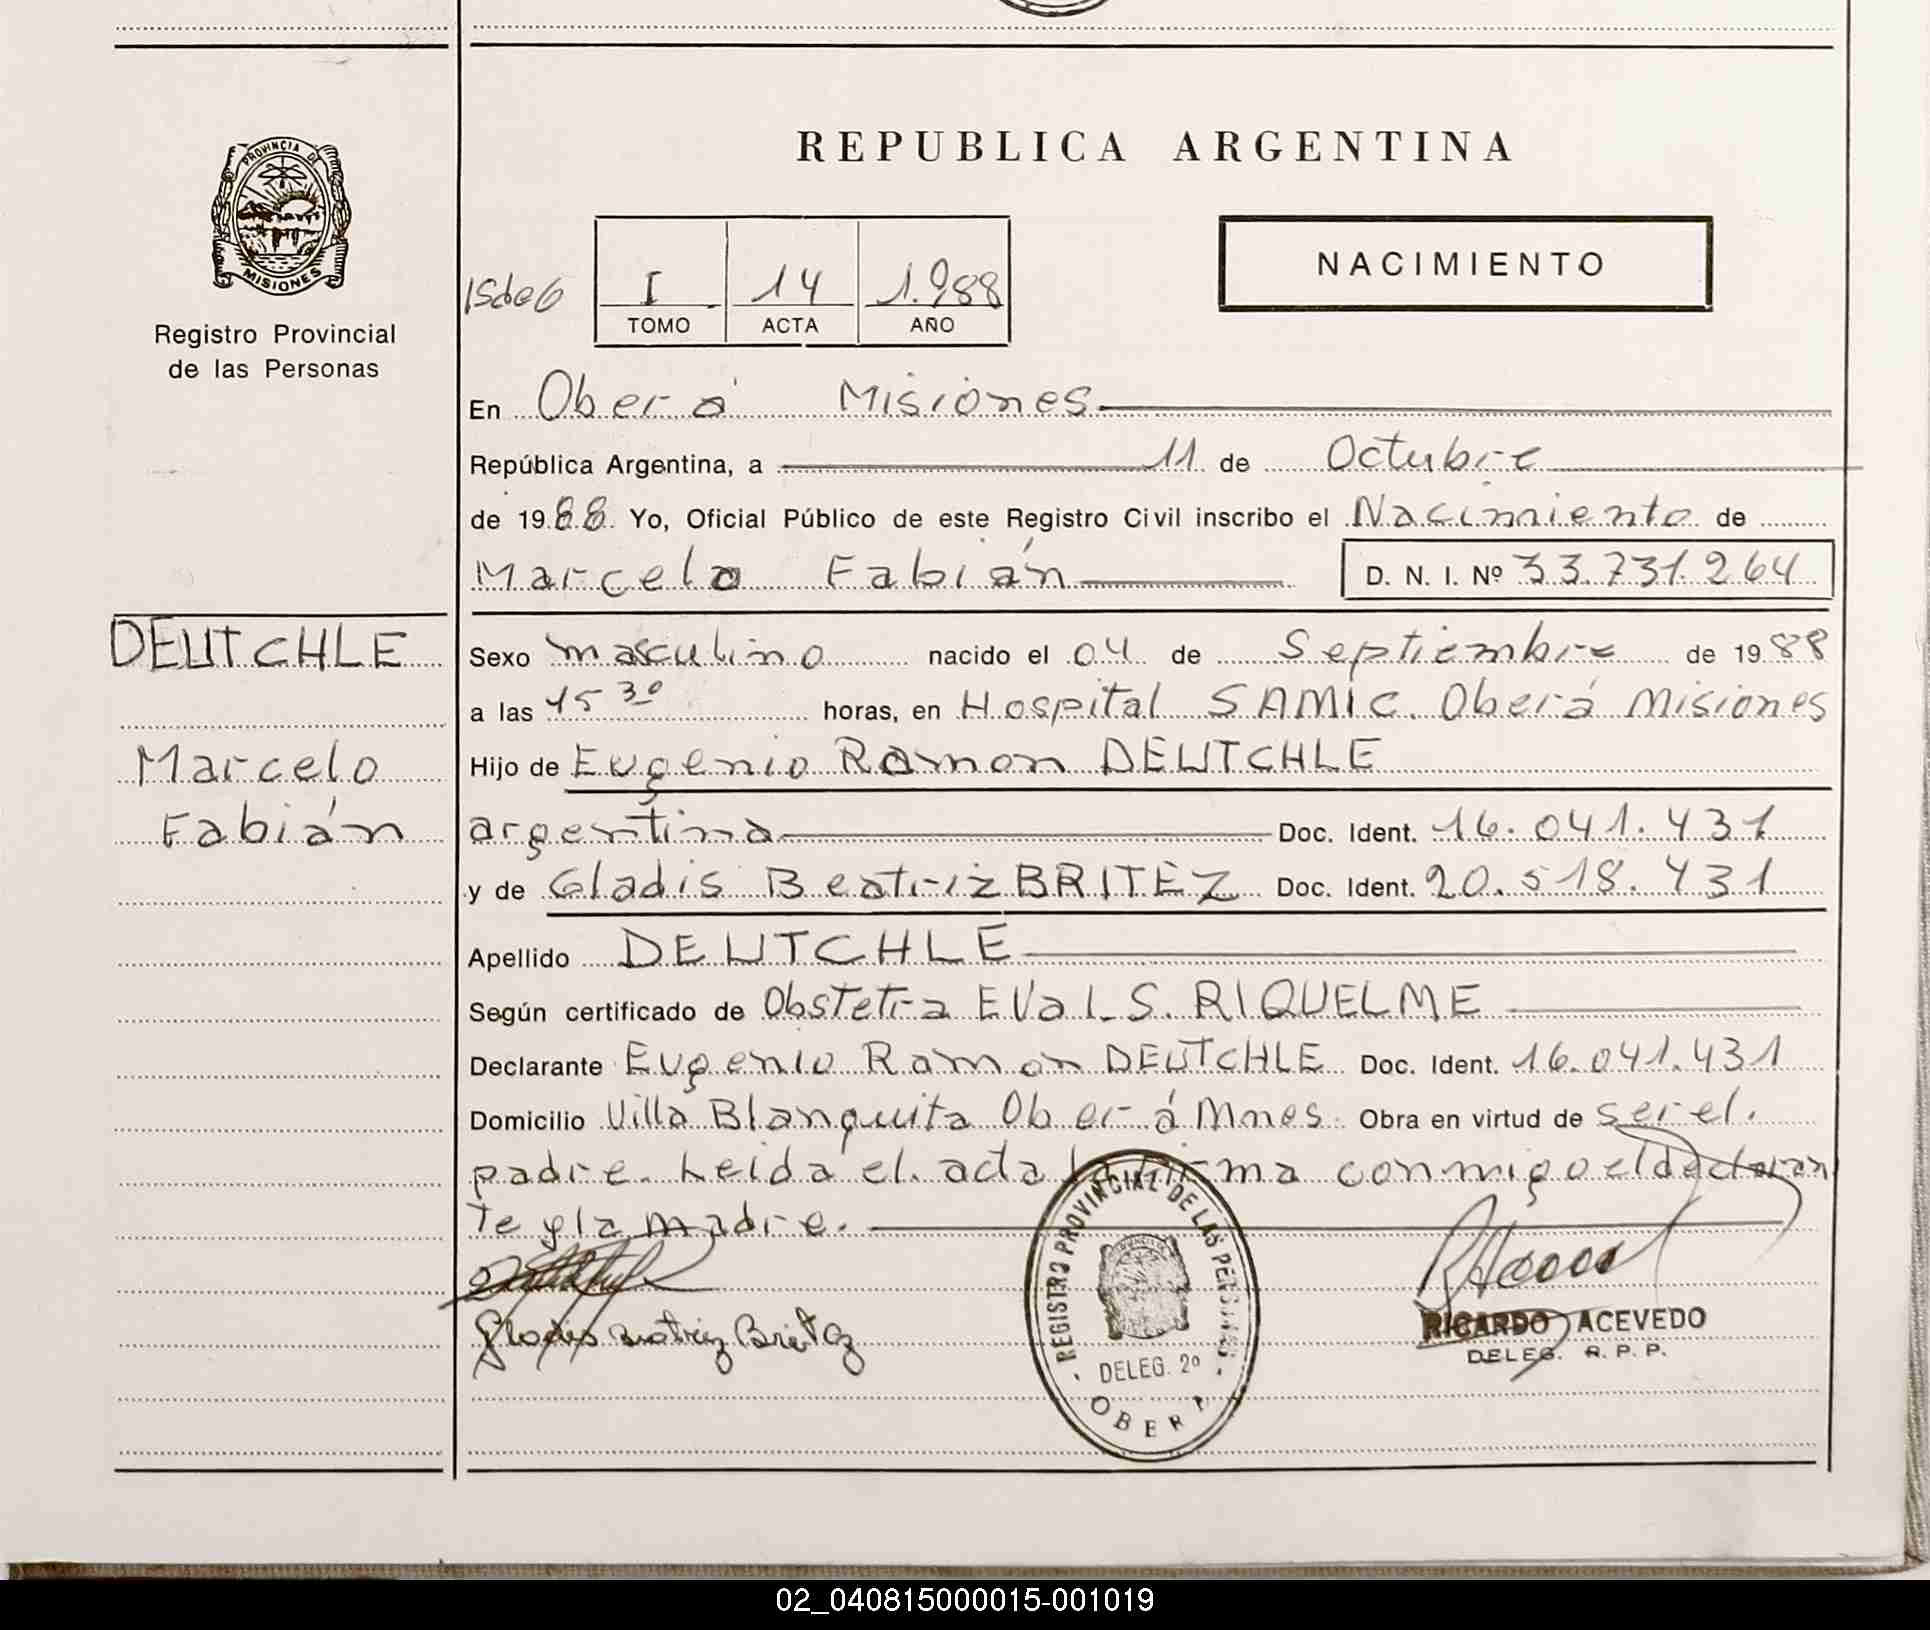 PROVINCIA DE
MISIONES
Registro Provincial
de las Personas
DEUTCHLE
Marcelo
Fabián
REPUBLICA ARGENTINA
I 14 1.988
TOMO ACTA AÑO
NACIMIENTO
En Oberá Misiones
República Argentina, a 11 de Octubre
de 1988 Yo, Oficial Público de este Registro Civil inscribo el Nacimiento de
Marcelo Fabián D. N. I. Nº 33.731.264
Sexo masculino nacido el 04 de Septiembre de 1988
a las 15 30 horas, en Hospital SAMIC. Oberá Misiones
Hijo de Eugenio Ramon DEUTCHLE
argentina Doc. Ident. 16.041.431
y de Gladis Beatriz BRITEZ Doc. Ident. 20.518.431
Apellido DEUTCHLE
Según certificado de Obstetra Eva L. S. RIQUELME
Declarante Eugenio Ramon DEUTCHLE Doc. Ident. 16.041.431
Domicilio Villa Blanquita Oberá Mnes. Obra en virtud de ser el.
padre. Leida el. acta la firma conmigo el declaran
te y la madre.
Gladis Beatriz Britez
REGISTRO PROVINCIAL DE LAS PERSONAS
DELEG. 2º
OBERA
RICARDO ACEVEDO
DELEG. R. P. P.
02_040815000015-001019